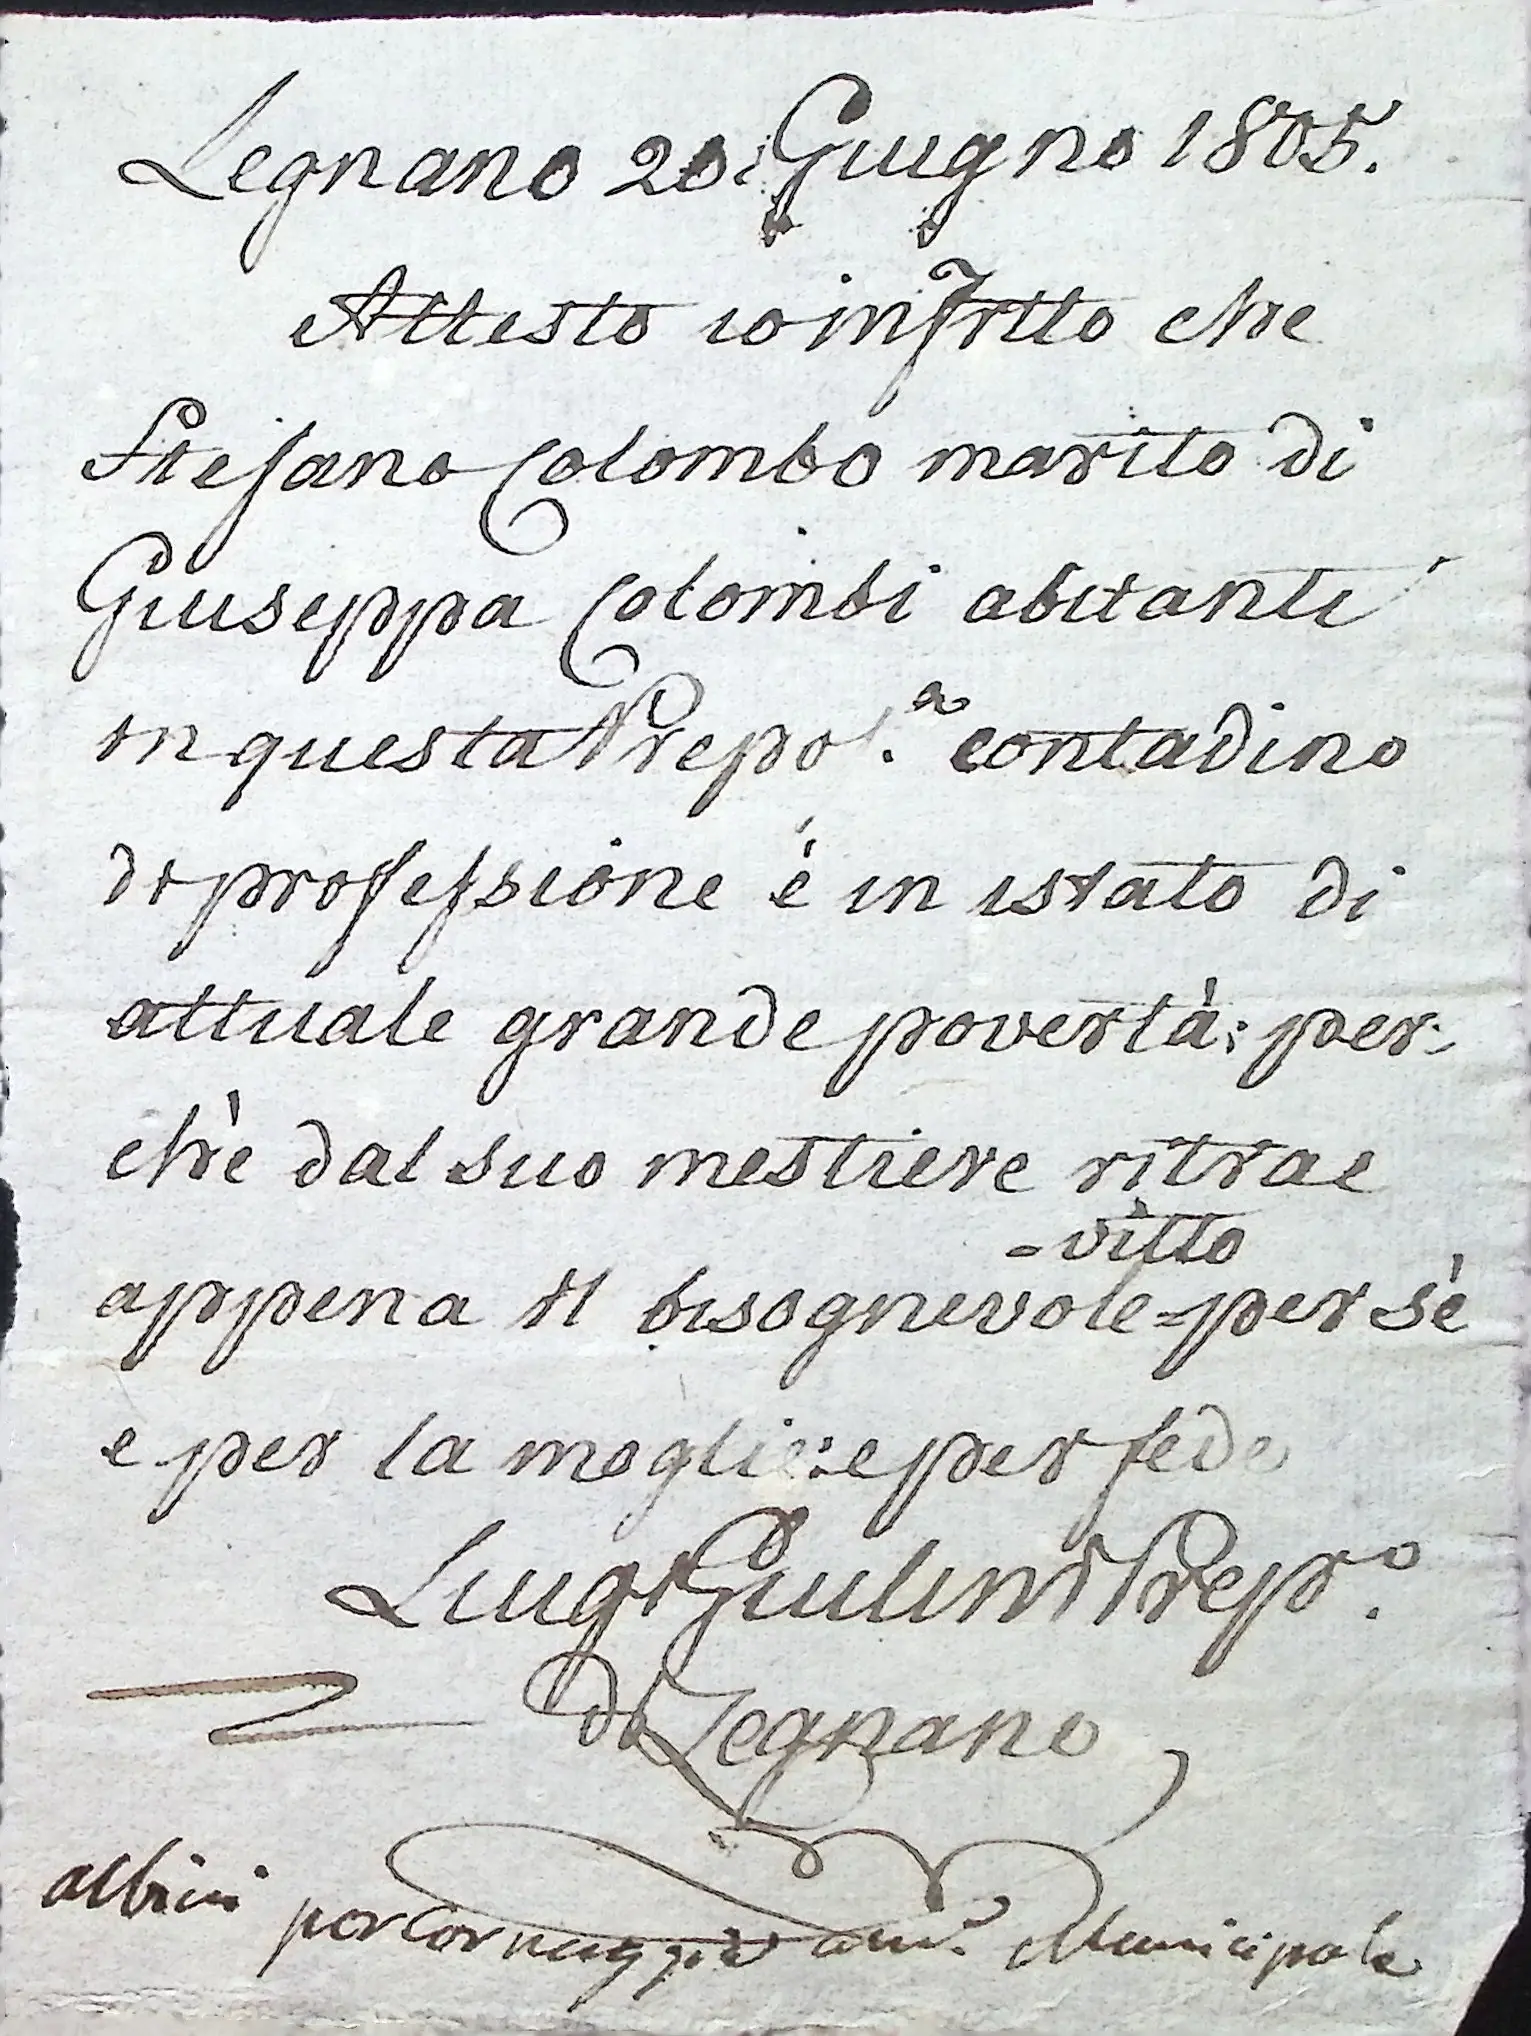 Legnano 20. Giugno 1805.
Attesto io infrtto che
Stefano Colombo marito di
Giuseppa Colombi abitanti
in questa Prepos.a contadino
di professione è in istato di
attuale grande povertà: per-
chè dal suo mestiere ritrae
= vitto
appena il bisognevole = per sè
e per la moglie: e per fede
Luigi Giulini Prepo.
di Legnano
albini per Cornaggia am. Municipale